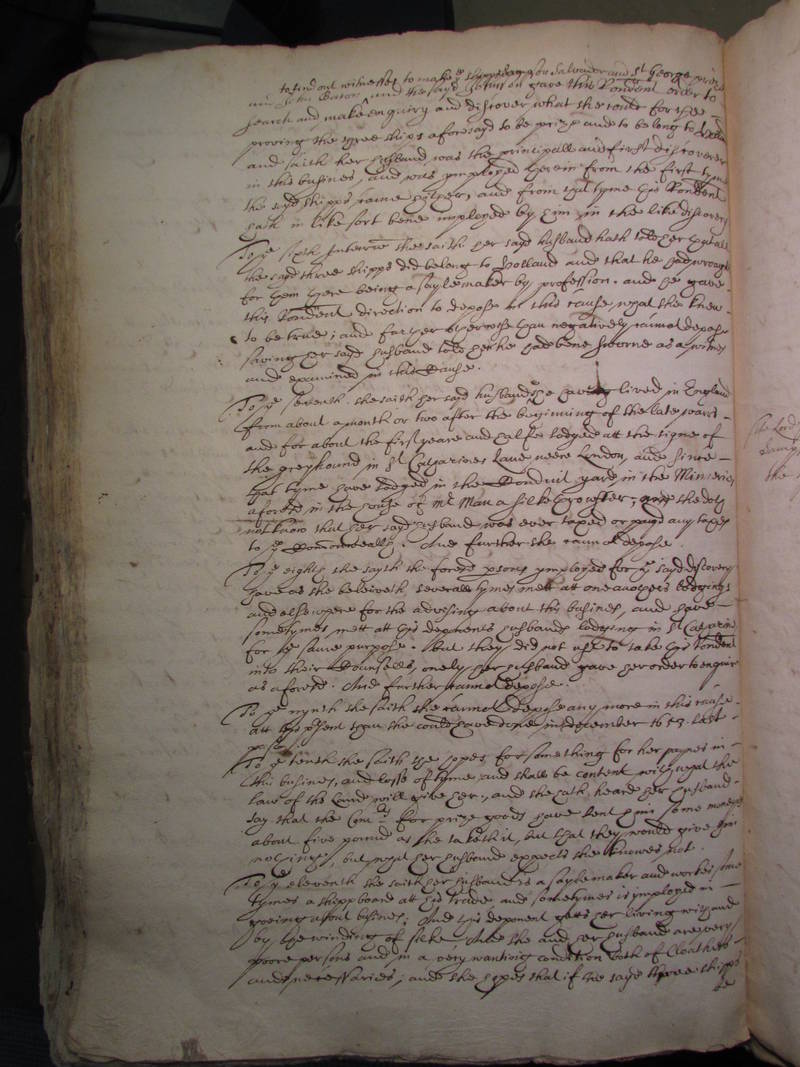 to find out witnesses to make the shipps Salvador and St George prize
and John Baron and the sayd gave this Rendent order to
search and make enquiry and discover what she could for the
proving the three ships aforesayd to be prize and to belong to
and saith her husband was the principall and first discoverer
in this busines, and was imployed therein from the first tyme
the sayd shipps came hither, and from that tyme this Rendent
hath in like sort bene imployed by him in the like discovery
To the sixth Interrie shee saith her said husband hath told her that all
the said three shipps did belong to Holland and that he had wrought
for them there being a saylemaker by profession. and he gave
this Rendent direction to depose in this cause what she knew
to be true, and further otherwise than negatively cannot depose
saving her said husband told her he had bene sworne as a witnes
and examined in this Cause.
To ye seventh she saith her said husband have lived in England
from about a month or two after the beginning of the late warrs
and for about the first yeare and halfe lodged att the signe of
the greyhound in St Catharines Lane neere London, and since
that tyme have lodged in the Conduit yard in the Minories
aforesd in the house of Mr Man a silke throwster, she doth
not know that her sayd husband was ever taxed or payd any taxes
to ye Commonwealth. And further she cannot depose.
To ye eighth she sayth the foresd psons imployed for ye sayd discovery
have as she beleiveth severall tymes mett att one anothers lodgings
and elsewhere for the advising about this busines, and have
sometymes mett att this deponents husbands lodging in St Catharins
for the same purpose. But they did not use to take this Rendent
into their Counsells, onely her husband gave her order to enquire
as aforesd. And further cannot depose.
To ye nynth she saith she cannot depose any more in this cause
att this psent than she could have done in december 1653. last
past.
To ye tenth she saith she hopes for something for her paynes in
this busines, and losse of tyme and shall be content with what the
law of the Land will give her, and she hath heard her husband
say that the Comrs for prize goods have lent him some moneys
about five pound as she taketh it, but that they would give him
nothing, but what her husband expects she knowes not.
To ye eleventh she saith her husband is a saylemaker and workes some
tymes a shippboard att his trade and sometymes is imployed in
goeing about busines; And this deponent getts her living with and
by the winding of silke And she and her husband are very
poore persons and in a very wanting condition both of Cloathes
and necessaries, and she hopes that if the said three shipps
be